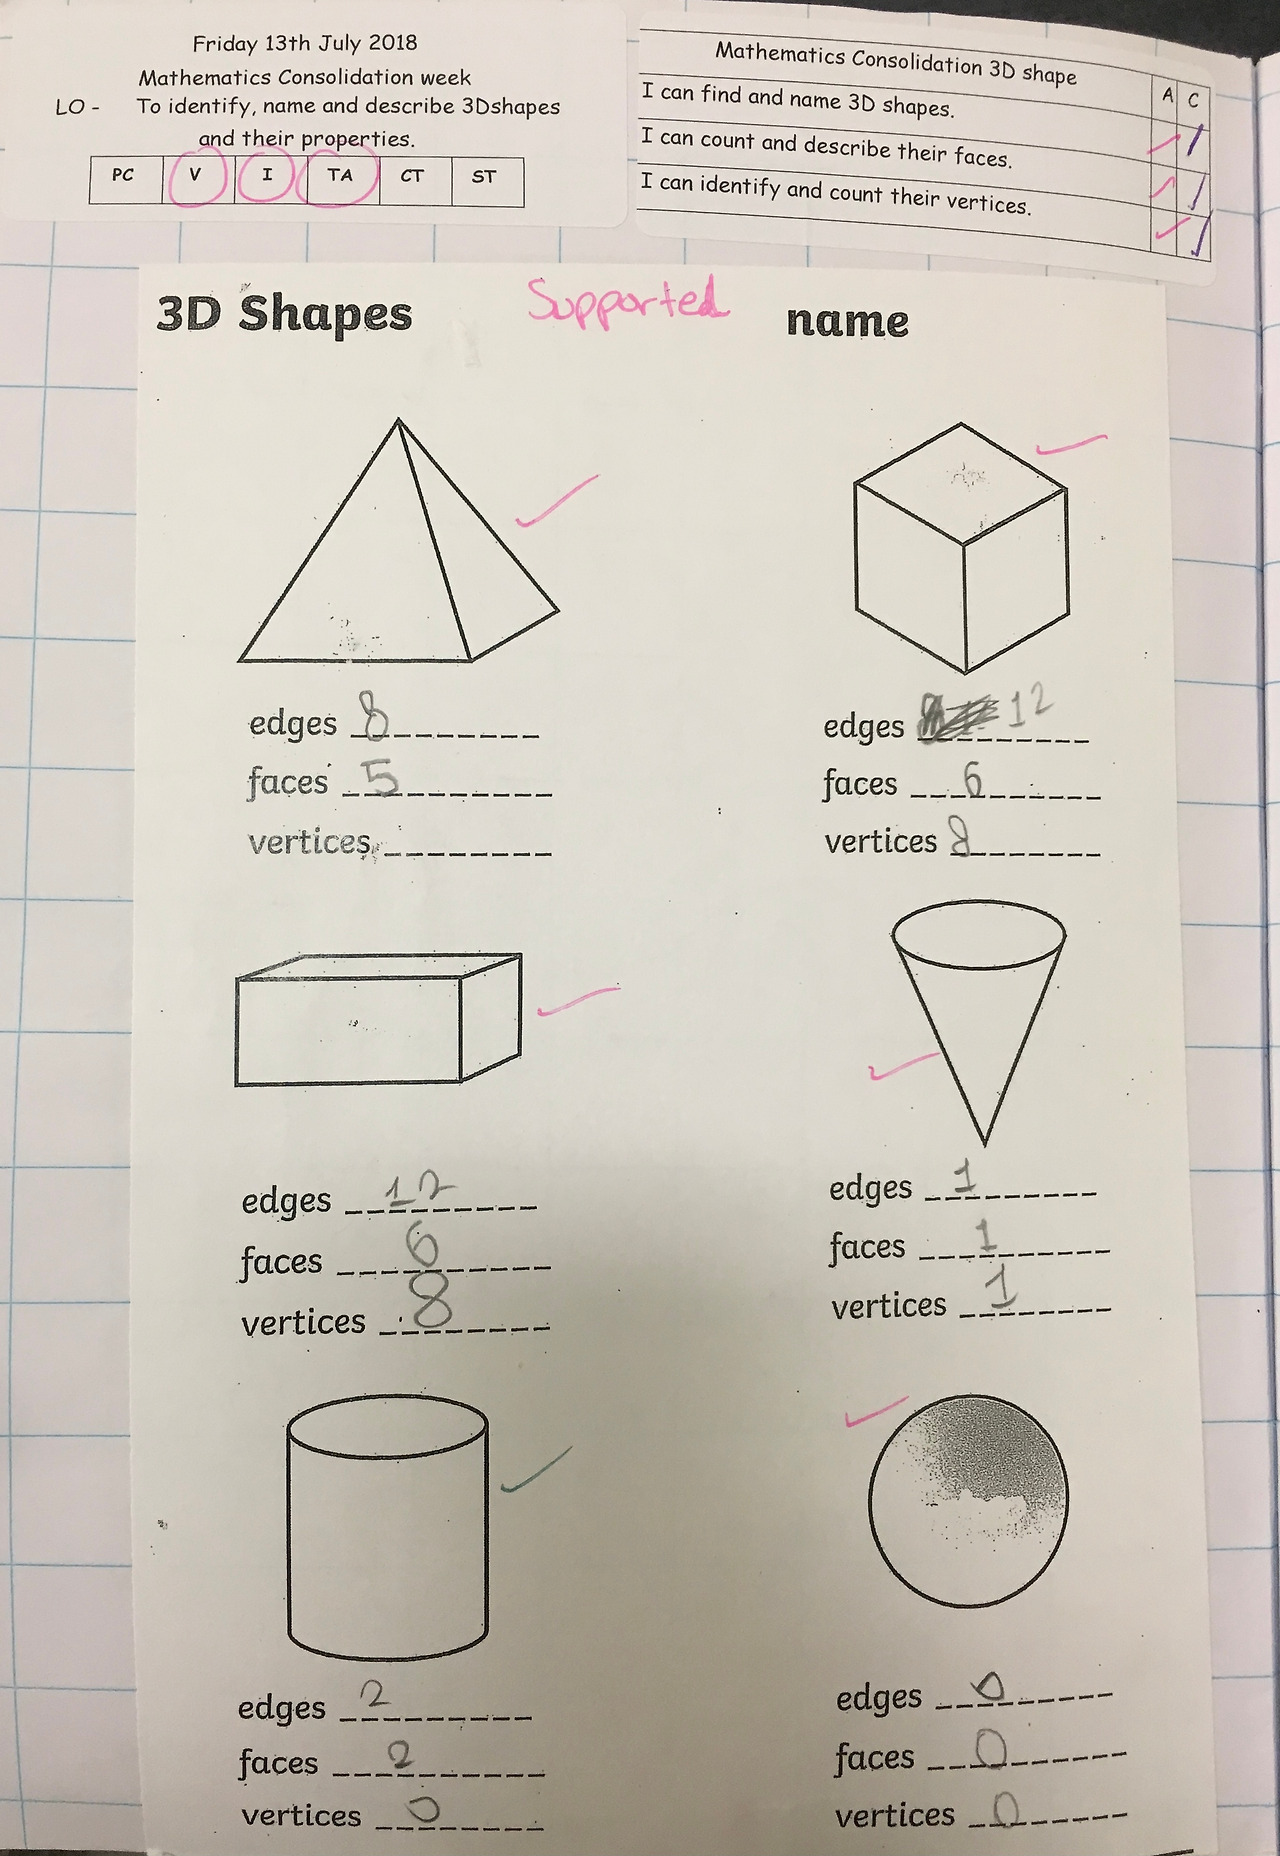 Friday 13th July 2018
Mathematics Consolidation week
LO - To identify, name and describe 3Dshapes
and their properties.
PC V I TA CT ST
Mathematics Consolidation 3D shape
A C
I can find and name 3D shapes.
I can count and describe their faces.
I can identify and count their vertices.
3D Shapes
Supported
name
edges 8
faces 5
vertices
edges 12
faces 6
vertices 8
edges 12
faces 6
vertices 8
edges 1
faces 1
vertices 1
edges 2
faces 2
vertices 0
edges 0
faces 0
vertices 0